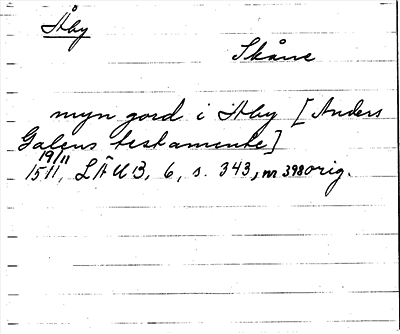 Åby
Skåne
myn gord i Aby [Anders
Galens testamente]
19/11
1511, LÄUB, 6, s. 343, nr 398 orig.